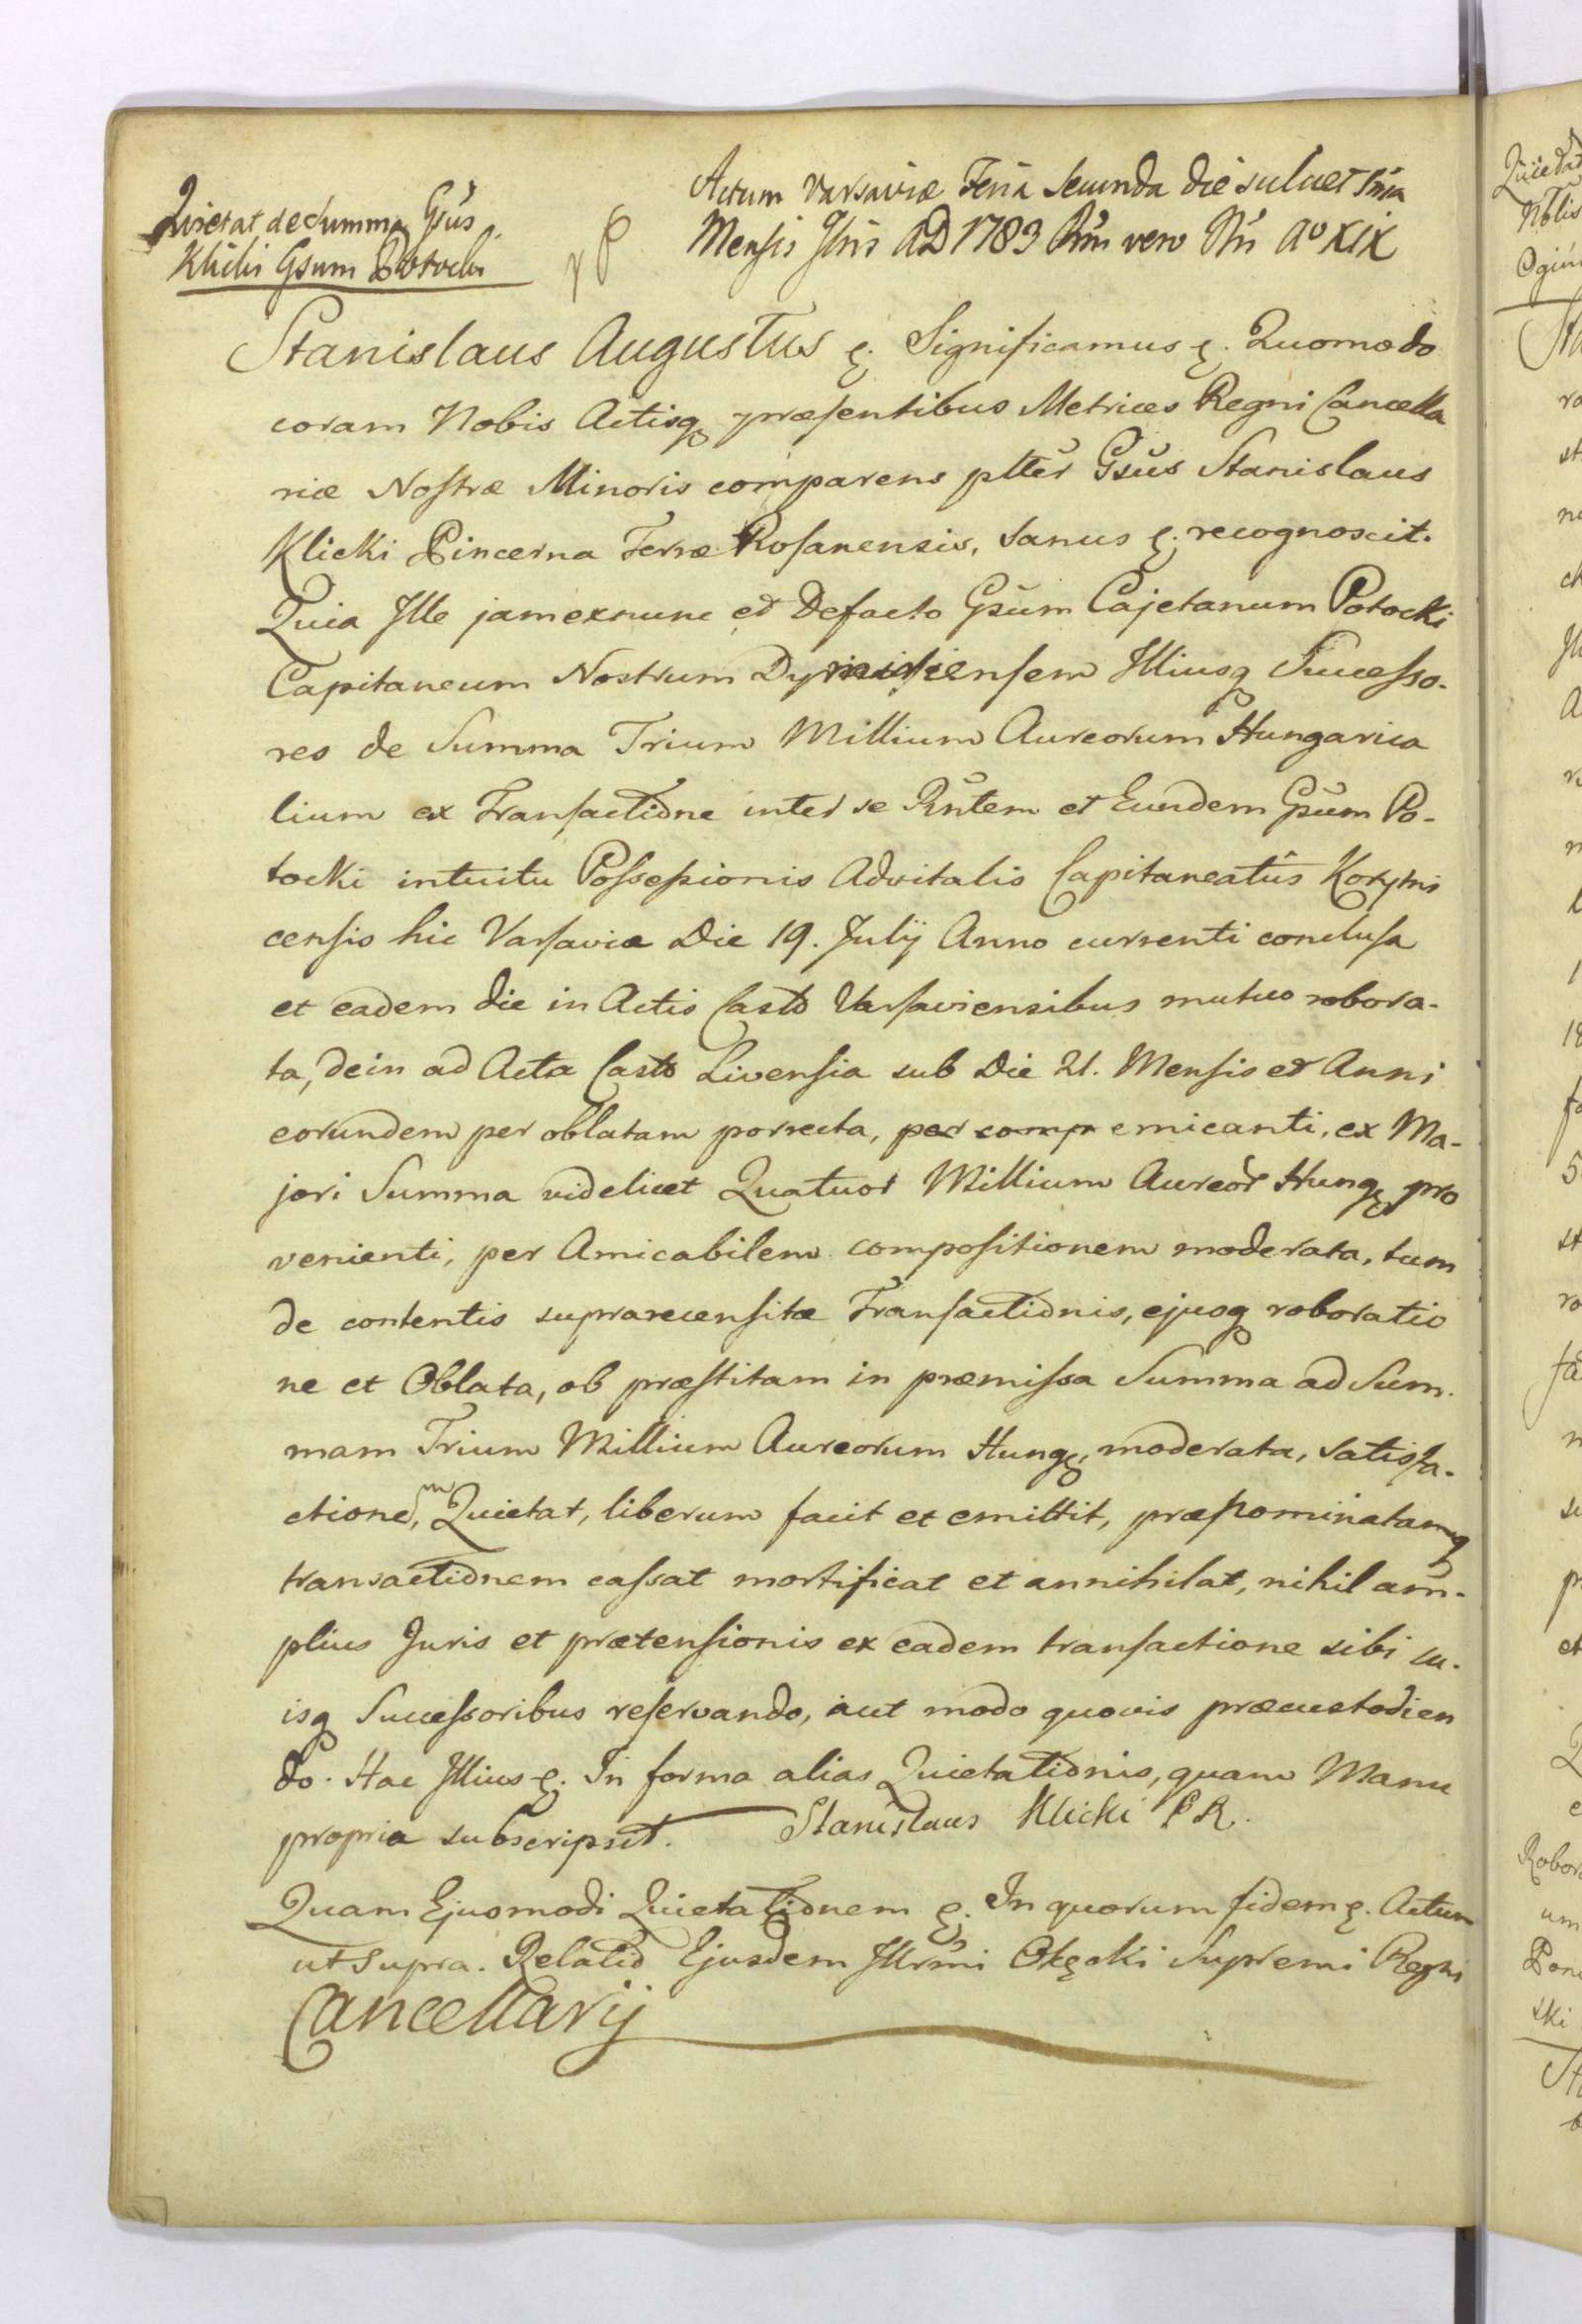 Quietat de Summa Gsus
Klicki Gsum Potocki
Actum Varsaviæ Feria Secunda die
Mensis AD 1783 Rni vero Nri Ao XIX
Stanislaus Augustus ę. Significamus ę. Quomodo
coram Nobis Actisq præsentibus Metrices Regni Cancella
riæ Nostræ Minoris comparens pltter Gsus Stanislaus
Klicki Pincerna Terræ Rosanensis, sanus ę. recognoscit.
Quia Ille jam exnunc et Defacto Gsum Cajetanum Potocki
Capitaneum Nostrum Illiusq Successo-
res de Summa Trium Millium Aureorum Hungarica
lium ex Transactione inter se Rntem et Eundem Gsum Po-
tocki intuitu Possessionis Advitalis Capitaneatûs Korytni
censis hic Varsaviæ Die 19. Julij Anno currenti conclusa
et eadem die in Actis Castr Varsaviensibus mutuo robora-
ta, dein ad Acta Castr Livensia sub Die 21. Mensis et Anni
eorundem per oblatam porrecta, per comp emicanti, ex Ma-
jori Summa videlicet Quatuor Millium Aureor Hung pro
venienti, per Amicabilem compositionem moderata, tum
de contentis suprarecensitæ Transactionis, ejusq roboratio
ne et Oblata, ob præstitam in præmissa Summa ad Sum-
mam Trium Millium Aureorum Hung, moderata, satisfa-
ctionem, Quietat, liberum facit et emittit, prænominatamq
transactionem cassat mortificat et annihilat, nihil am-
plius Juris et prætensionis ex eadem transactione sibi su-
isq Successoribus reservando, aut modo quovis præcustodien
do. Hac Illius ę. In forma alias Quietationis, quam Manu
propria subscripsit. Stanislaus Klicki P R.
Quam Ejusmodi Quietationem ę. In quorum fidem ę. Actum
ut supra. Relatio Ejusdem Illrmi Okęcki Supremi Regni
Cancellarij